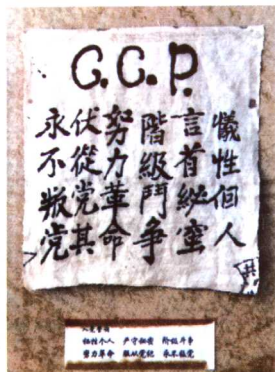 C.C.P.
犠性人
言首蜜
階級鬥争
努力革命
伏從党其
永不叛党
入党誓词
牺牲个人 严守秘密 阶级斗争
努力革命 服从党纪 永不叛党